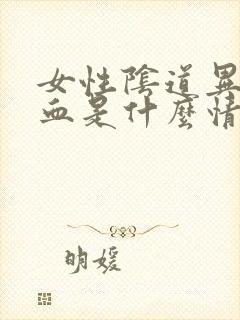 女性陰道異
血是什麼情
明媛